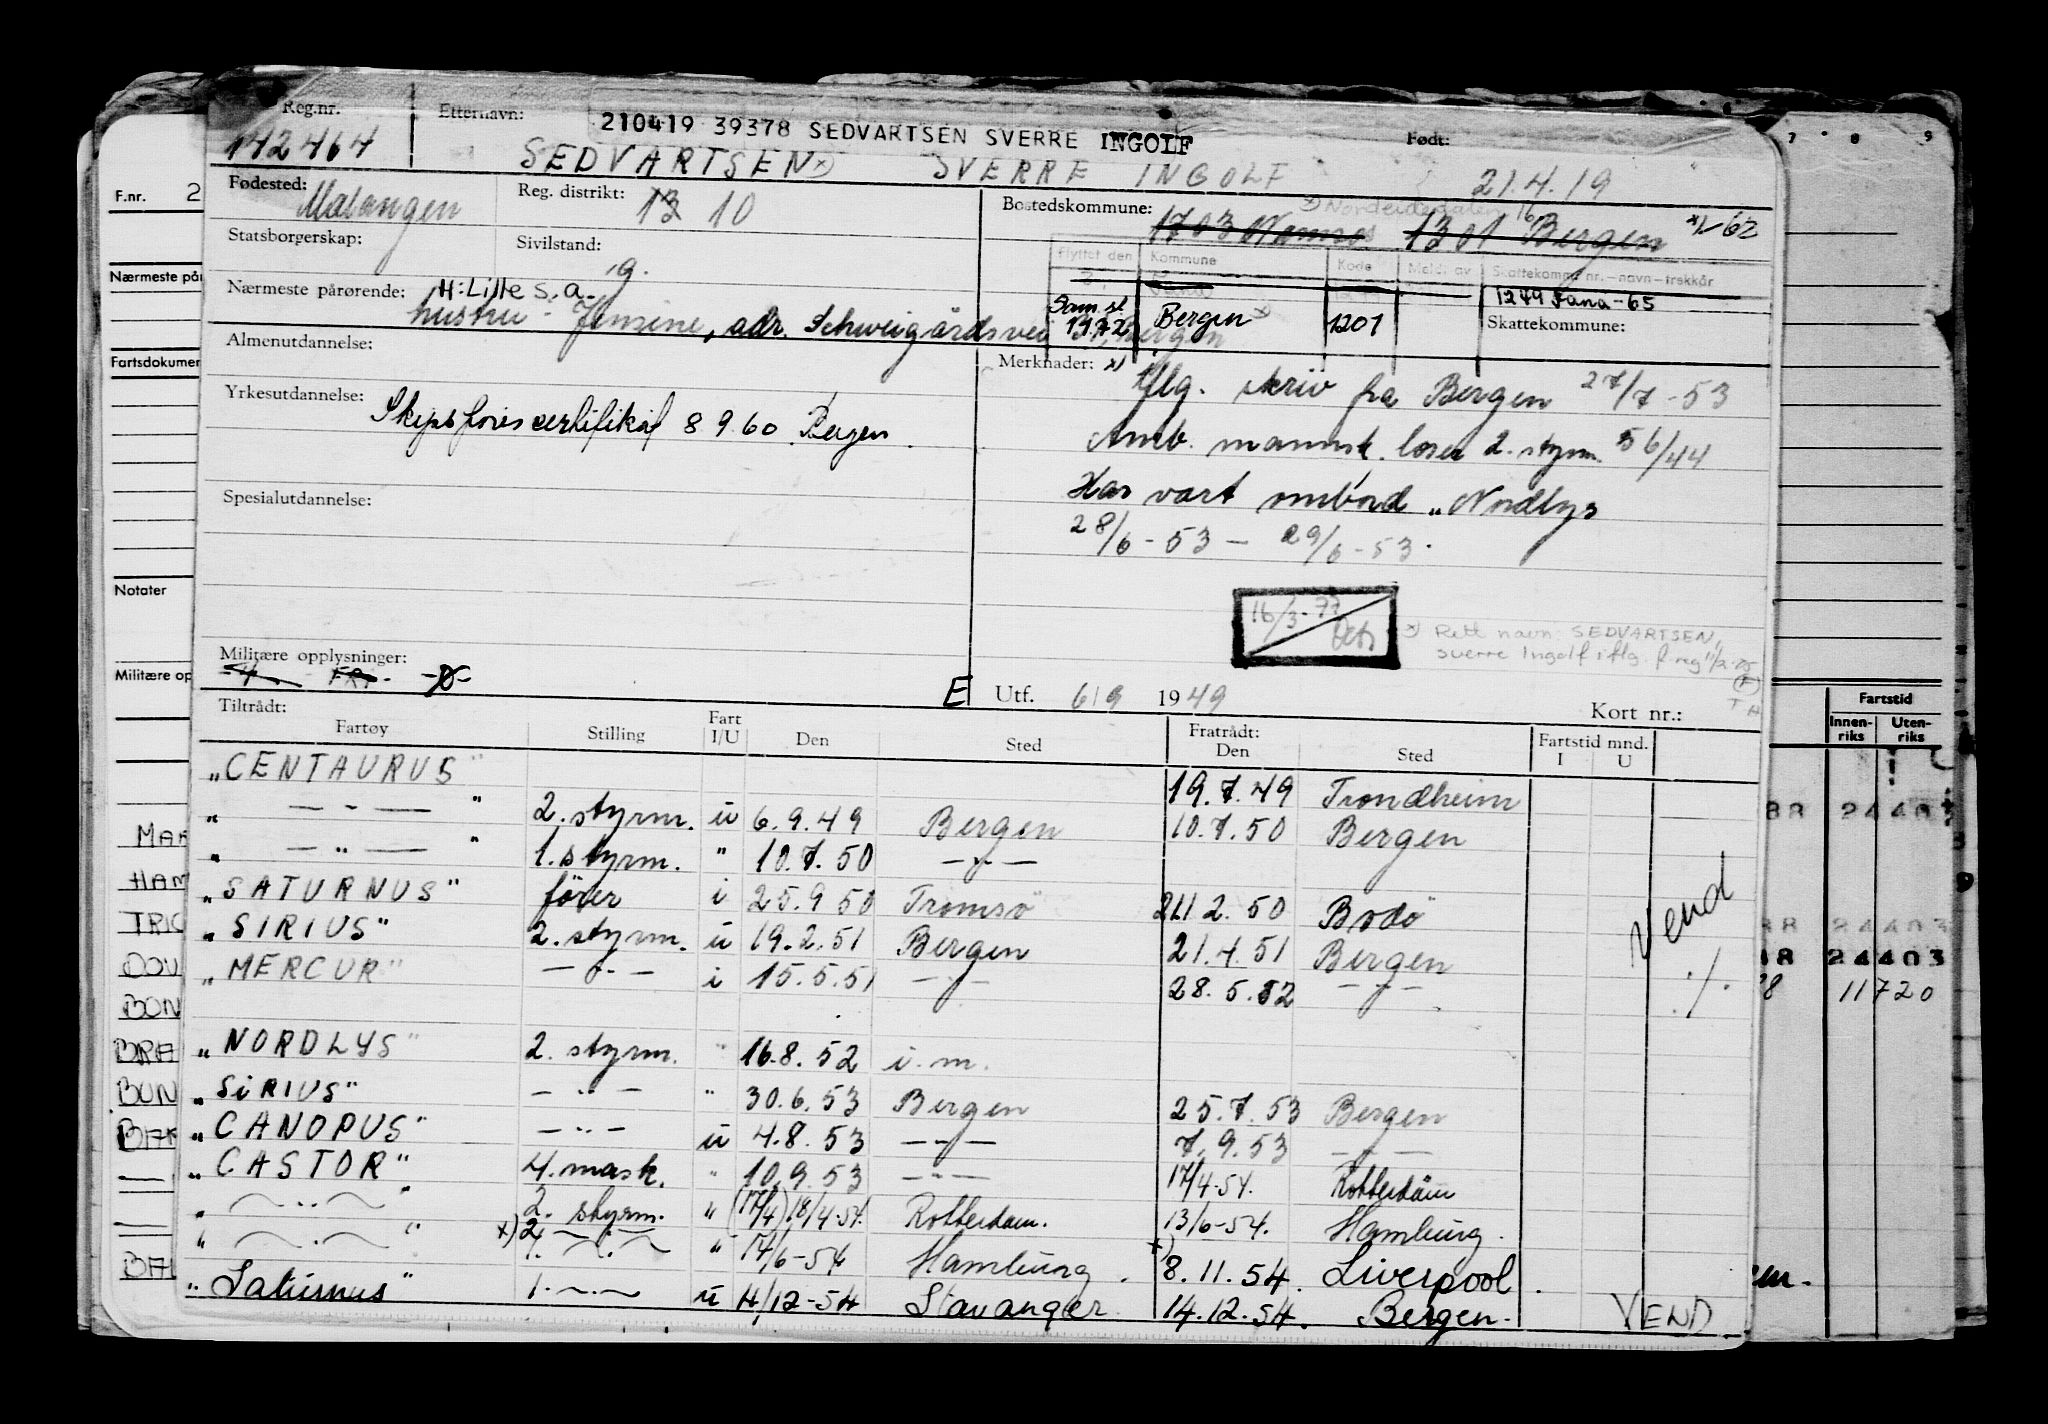 Reg.nr. Etternavn: 210419 39378 SEDVARTSEN SVERRE INGOLF Født:
142464 SEDVARTSEN SVERRE INGOLF 21.4.19
F.nr. 2
Fødested: Malangen Reg. distrikt: 13 10 Bostedskommune: 1703 1301 Bergen
Statsborgerskap: Sivilstand: g.
Flyttet den Kommune Kode Meldt av Skattekomm nr.-navn-trekkår
1249 Fana-65
Nærmeste på
Nærmeste pårørende: H: Lille s.a.
hustru - Jensine, adr. Schweigårdsvei Bergen
1972 Bergen 1201 Skattekommune:
Almenutdannelse:
Fartsdokumen
Merknader: x) Iflg. skriv fra Bergen 27/7-53
Yrkesutdannelse: Skipsførercertifikat 8 9 60 Bergen.
Amb. mannsk. loser 2. styrm. 56/44
Spesialutdannelse:
Har vært ombord „Nordlys
28/6-53 - 29/6-53.
Notater
16/3-77
x) Rett navn: SEDVARTSEN,
Sverre Ingolf iflg. f.reg
Militære op
Militære opplysninger:
E Utf. 6/9 1949 Kort nr.:
Tiltrådt: Fratrådt: Fartstid mnd.
Fartøy Stilling Fart I/U Den Sted Den Sted I U
Fartstid
Innen-riks Uten-riks
„CENTAURUS" 19.7.49 Trondheim
„ — " — " 2. styrm. u 6.9.49 Bergen 10.7.50 Bergen
„ — " — " 1. styrm. " 10.7.50 — " —
„SATURNUS" fører i 25.9 50 Tromsø 2.50 Bodø
„SIRIUS" 2. styrm. u 19.2.51 Bergen 21.4.51 Bergen
„MERCUR" — " — i 15.5.51 — " — 28.5.52 — " —
Vend
./.
„NORDLYS" 2. styrm. " 16.8.52 i.m.
„SiRIUS" — " — " 30.6.53 Bergen 25.7.53 Bergen
„CANOPUS" — " — u 4.8.53 — " — 7.9.53 — " —
„CASTOR" 4. mask. " 10.9.53 — " — 17/4-54. Rotterdam
„ — " — " 2. styrm. " (17/4) 18/4-54. Rotterdam. 13/6-54. Hamburg.
„ — " — " x) 2. — " — " 14/6-54 Hamburg. x) 8.11.54. Liverpool.
„Saturnus" 1. — " — u 4/12-54 Stavanger. 14.12.54. Bergen.
VEND
MAR
HAM
TRIC
DOV
BON
BRA
BUN
BAK
BAI
7 8 9
88 24403
24403
11720
em.